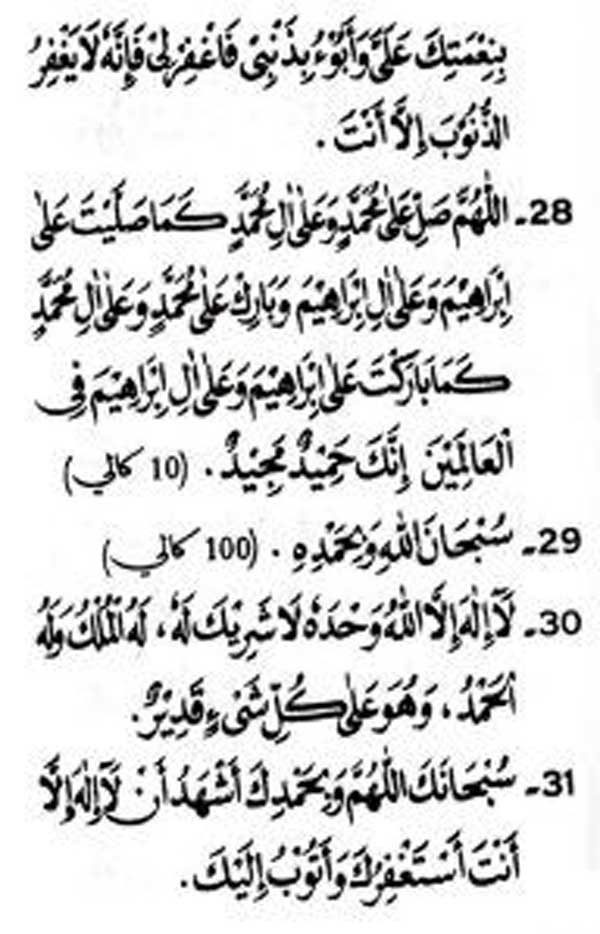 بِنِعْمَتِكَ عَلَيَّ وَأَبُوْءُ بِذَنْبِيْ فَاغْفِرْلِيْ فَإِنَّهُ لَا يَغْفِرُ
الذُّنُوْبَ إِلاَّ أَنْتَ .
28ـ اللّٰهُمَّ صَلِّ عَلٰى مُحَمَّدٍ وَعَلٰى اٰلِ مُحَمَّدٍ كَمَا صَلَّيْتَ عَلٰى
اِبْرَاهِيْمَ وَعَلٰى اٰلِ اِبْرَاهِيْمَ وَبَارِكْ عَلٰى مُحَمَّدٍ وَعَلٰى اٰلِ مُحَمَّدٍ
كَمَا بَارَكْتَ عَلٰى اِبْرَاهِيْمَ وَعَلٰى اٰلِ اِبْرَاهِيْمَ فِى
الْعَالَمِيْنَ إِنَّكَ حَمِيْدٌ مَجِيْدٌ . (10 كالي)
29ـ سُبْحَانَ اللهِ وَبِحَمْدِهِ . (100 كالي)
30ـ لَآ إِلٰهَ إِلَّا اللهُ وَحْدَهُ لَا شَرِيْكَ لَهُ، لَهُ الْمُلْكُ وَلَهُ
الْحَمْدُ، وَهُوَ عَلٰى كُلِّ شَىْءٍ قَدِيْرٌ.
31ـ سُبْحَانَكَ اللّٰهُمَّ وَبِحَمْدِكَ أَشْهَدُ أَنْ لَآ إِلٰهَ إِلَّا
أَنْتَ أَسْتَغْفِرُكَ وَأَتُوْبُ إِلَيْكَ .